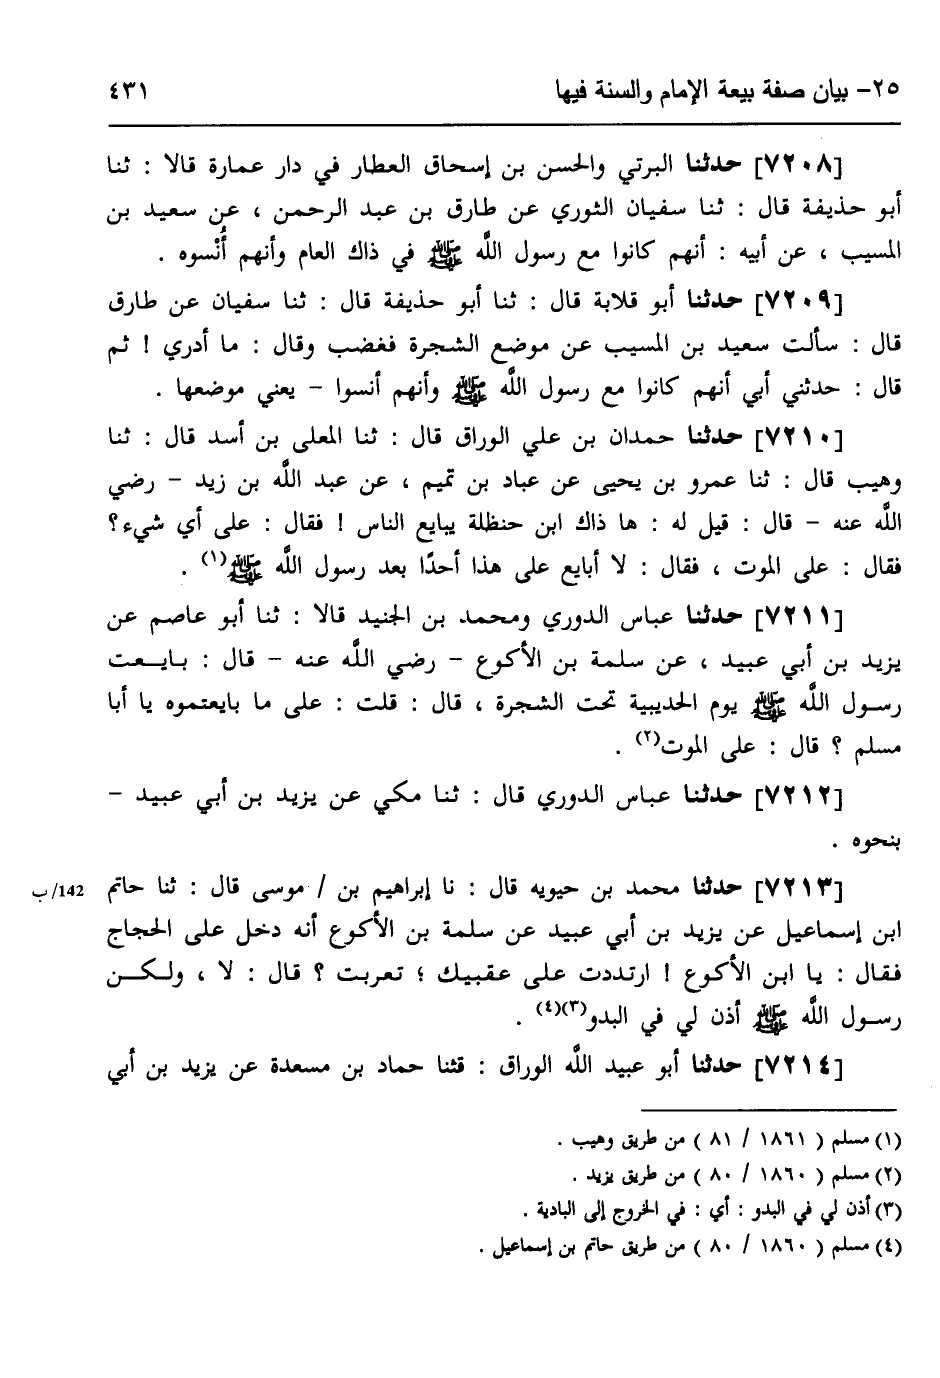 ٢٥- بيان صفة بيعة الإمام والسنة فيها ٤٣١
[٧٢٠٨] حدثنا البرتي والحسن بن إسحاق العطار في دار عمارة قالا : ثنا
أبو حذيفة قال : ثنا سفيان الثوري عن طارق بن عبد الرحمن ، عن سعيد بن
المسيب ، عن أبيه : أنهم كانوا مع رسول اللَّه ﷺ في ذاك العام وأنهم أُنْسوه .
[٧٢٠٩] حدثنا أبو قلابة قال : ثنا أبو حذيفة قال : ثنا سفيان عن طارق
قال : سألت سعيد بن المسيب عن موضع الشجرة فغضب وقال : ما أدري ! ثم
قال : حدثني أبي أنهم كانوا مع رسول اللَّه ﷺ وأنهم أنسوا - يعني موضعها .
[٧٢١٠] حدثنا حمدان بن علي الوراق قال : ثنا المعلى بن أسد قال : ثنا
وهيب قال : ثنا عمرو بن يحيى عن عباد بن تميم ، عن عبد اللَّه بن زيد - رضي
اللَّه عنه - قال : قيل له : ها ذاك ابن حنظلة يبايع الناس ! فقال : على أي شيء؟
فقال : على الموت ، فقال : لا أبايع على هذا أحدًا بعد رسول اللَّه ﷺ(١) .
[٧٢١١] حدثنا عباس الدوري ومحمد بن الجنيد قالا : ثنا أبو عاصم عن
يزيد بن أبي عبيد ، عن سلمة بن الأكوع - رضي اللَّه عنه - قال : بايعت
رسول اللَّه ﷺ يوم الحديبية تحت الشجرة ، قال : قلت : على ما بايعتموه يا أبا
مسلم ؟ قال : على الموت(٢) .
[٧٢١٢] حدثنا عباس الدوري قال : ثنا مكي عن يزيد بن أبي عبيد -
بنحوه .
[٧٢١٣] حدثنا محمد بن حيويه قال : نا إبراهيم بن / موسى قال : ثنا حاتم 142/ب
ابن إسماعيل عن يزيد بن أبي عبيد عن سلمة بن الأكوع أنه دخل على الحجاج
فقال : يا ابن الأكوع ! ارتددت على عقبيك ؛ تعربت ؟ قال : لا ، ولكن
رسول اللَّه ﷺ أذن لي في البدو(٣)(٤) .
[٧٢١٤] حدثنا أبو عبيد اللَّه الوراق : قثنا حماد بن مسعدة عن يزيد بن أبي
(١) مسلم ( ١٨٦١ / ٨١ ) من طريق وهيب .
(٢) مسلم ( ١٨٦٠ / ٨٠ ) من طريق يزيد .
(٣) أذن لي في البدو : أي : في الخروج إلى البادية .
(٤) مسلم ( ١٨٦٠ / ٨٠ ) من طريق حاتم بن إسماعيل .